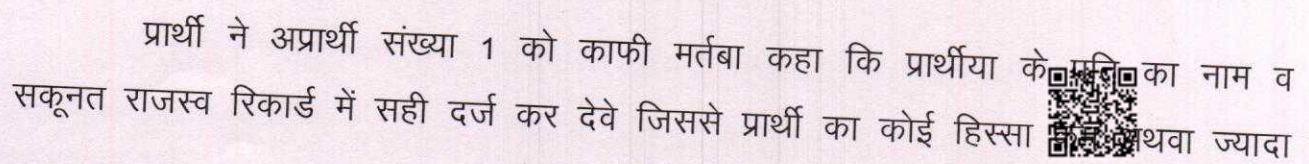 प्रार्थी ने अप्रार्थी संख्या 1 को काफी मर्तबा कहा कि प्रार्थीया के का नाम व
सकूनत राजस्व रिकार्ड में सही दर्ज कर देवे जिससे प्रार्थी का कोई हिस्सा अथवा ज्यादा